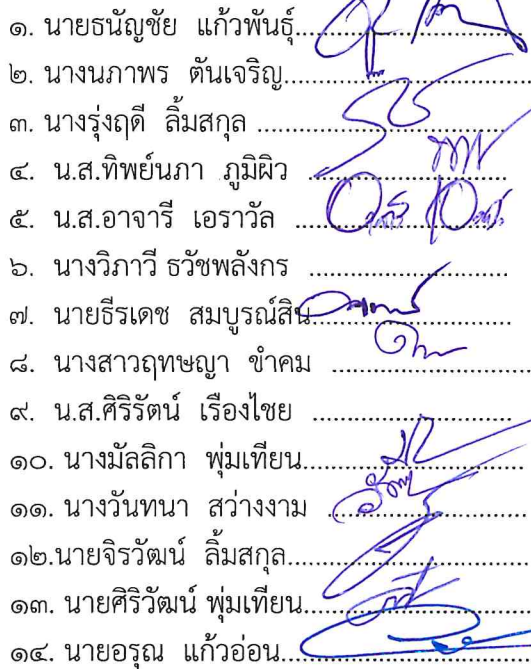 ๑. นายธนัญชัย แก้วพันธุ์....................
๒. นางนภาพร ตันเจริญ....................
๓. นางรุ่งฤดี ลิ้มสกุล ....................
๔. น.ส.ทิพย์นภา ภูมิผิว ....................
๕. น.ส.อาจารี เอราวัล ....................
๖. นางวิภาวี ธวัชพลังกร ....................
๗. นายธีรเดช สมบูรณ์สิน....................
๘. นางสาวฤทษญา ขำคม ....................
๙. น.ส.ศิริรัตน์ เรืองไชย ....................
๑๐. นางมัลลิกา พุ่มเทียน....................
๑๑. นางวันทนา สว่างงาม ....................
๑๒.นายจิรวัฒน์ ลิ้มสกุล....................
๑๓. นายศิริวัฒน์ พุ่มเทียน....................
๑๔. นายอรุณ แก้วอ่อน....................